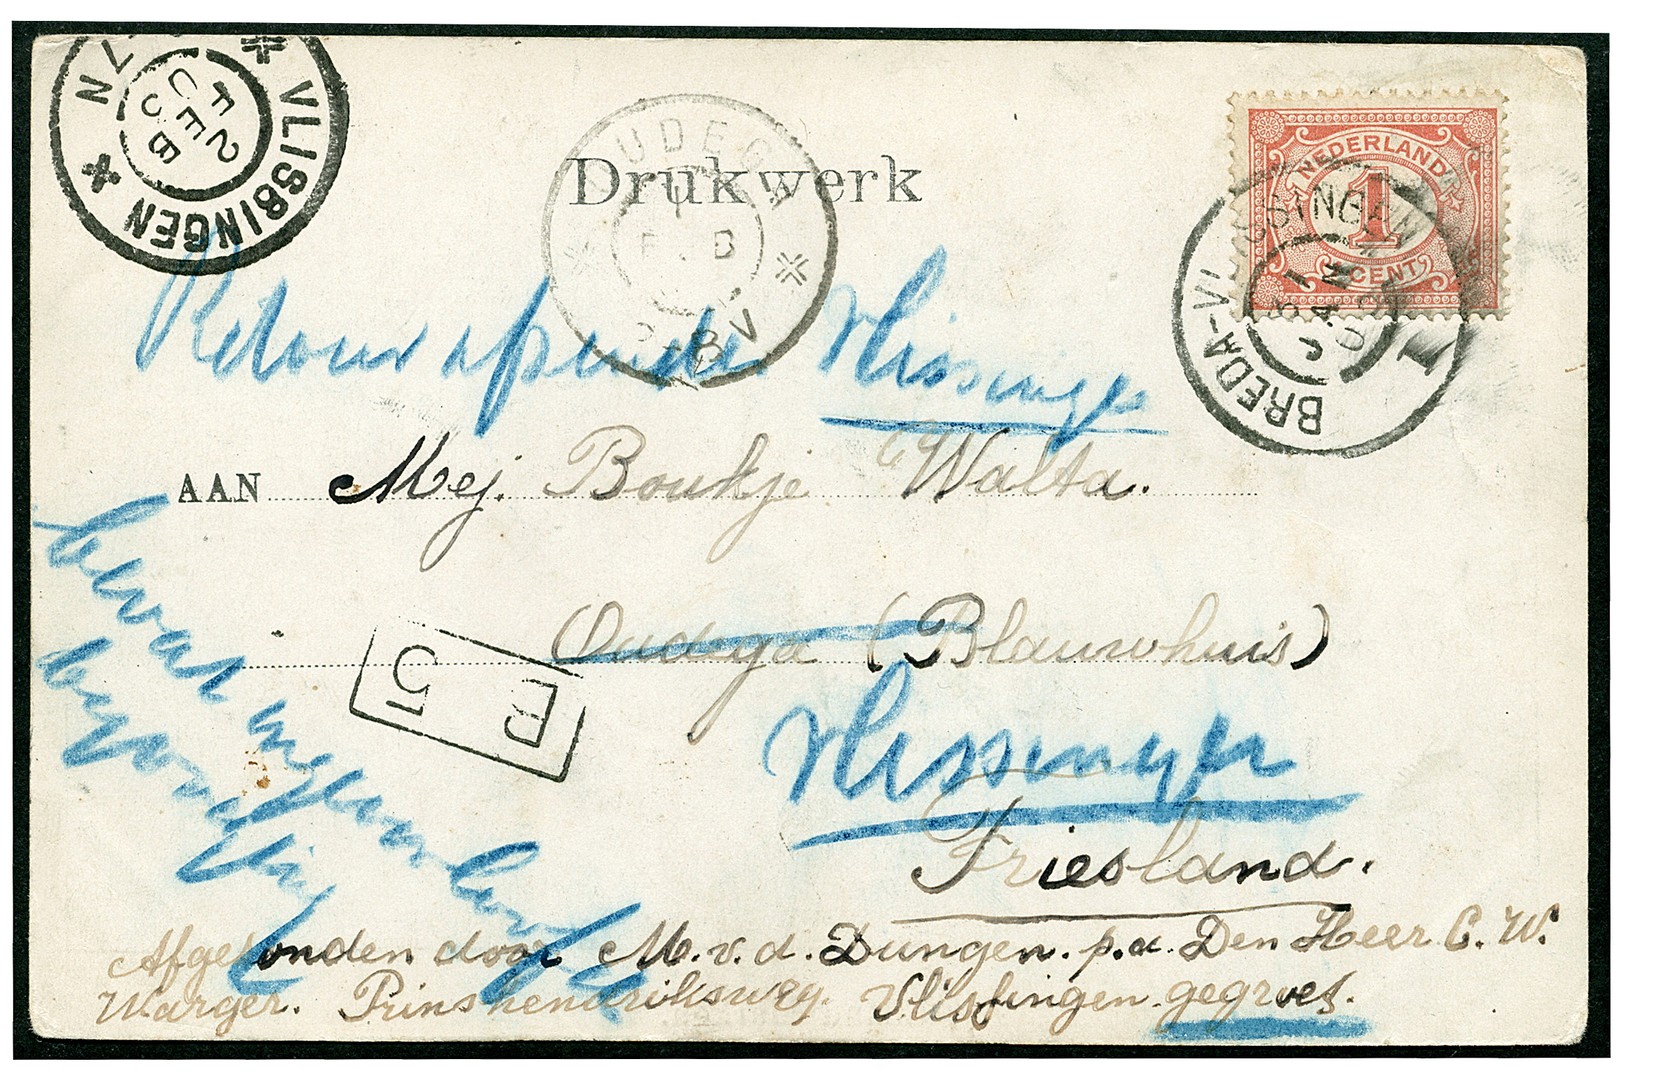 VLISSINGEN
2
FEB
03
7N
OUDEGA
FEB
Drukwerk
NEDERLAND
1
CENT
BREDA-VLISSINGEN
31
JAN
I
Retour afzender Vlissingen
AAN Mej. Boukje Walta.
Oudega (Blauwhuis)
E 5
Vlissingen
Friesland.
bevat ongeoorloofde
bijvoeging
Afgezonden door M. v. d. Dungen. p.a. Den Heer C. W.
Warger. Prinshendriksweg. Vlissingen gegroet.